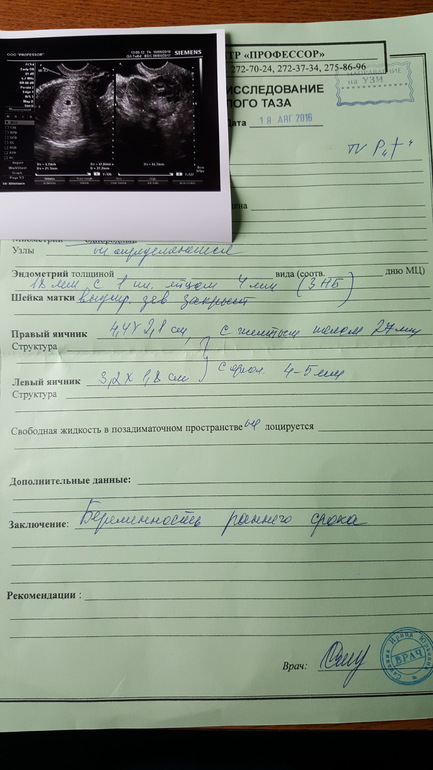 ООО "PROFESSOR"
SIEMENS
ТР «ПРОФЕССОР»
272-70-24, 272-37-34, 275-86-96
на УЗМ
ИССЛЕДОВАНИЕ
ЛОГО ТАЗА
Дата 18 АВГ 2016
TV P„+"
Узлы не определяются
Эндометрий толщиной вида (соотв. дню МЦ)
18 мм с 1 пл. яйцом 4 мм (3 НБ)
Шейка матки внутр. зев закрыт
Правый яичник 4,4 x 2,8 см, с желтым телом 27 мм
Структура
с фол. 4-5 мм
Левый яичник 3,2 x 1,8 см
Структура
Свободная жидкость в позадиматочном пространстве не лоцируется
Дополнительные данные:
Заключение: Беременность раннего срока
Рекомендации :
Врач:
ВРАЧ